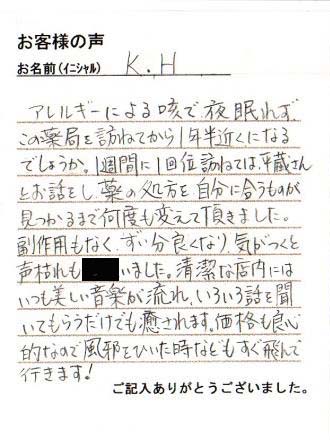 お客様の声
お名前(イニシャル) K.H
アレルギーによる咳で夜眠れず、
この薬局を訪ねてから1年半近くになる
でしょうか。1週間に1回位訪ねては、平蔵さん
とお話をし、薬の処方を自分に合うものが
見つかるまで何度も変えて頂きました。
副作用もなく、ずい分良くなり、気がつくと
声枯れも いました。清潔な店内には
いつも美しい音楽が流れ、いろいろ話を聞
いてもらうだけでも癒されます。価格も良心
的なので風邪をひいた時などもすぐ飛んで
行きます!
ご記入ありがとうございました。